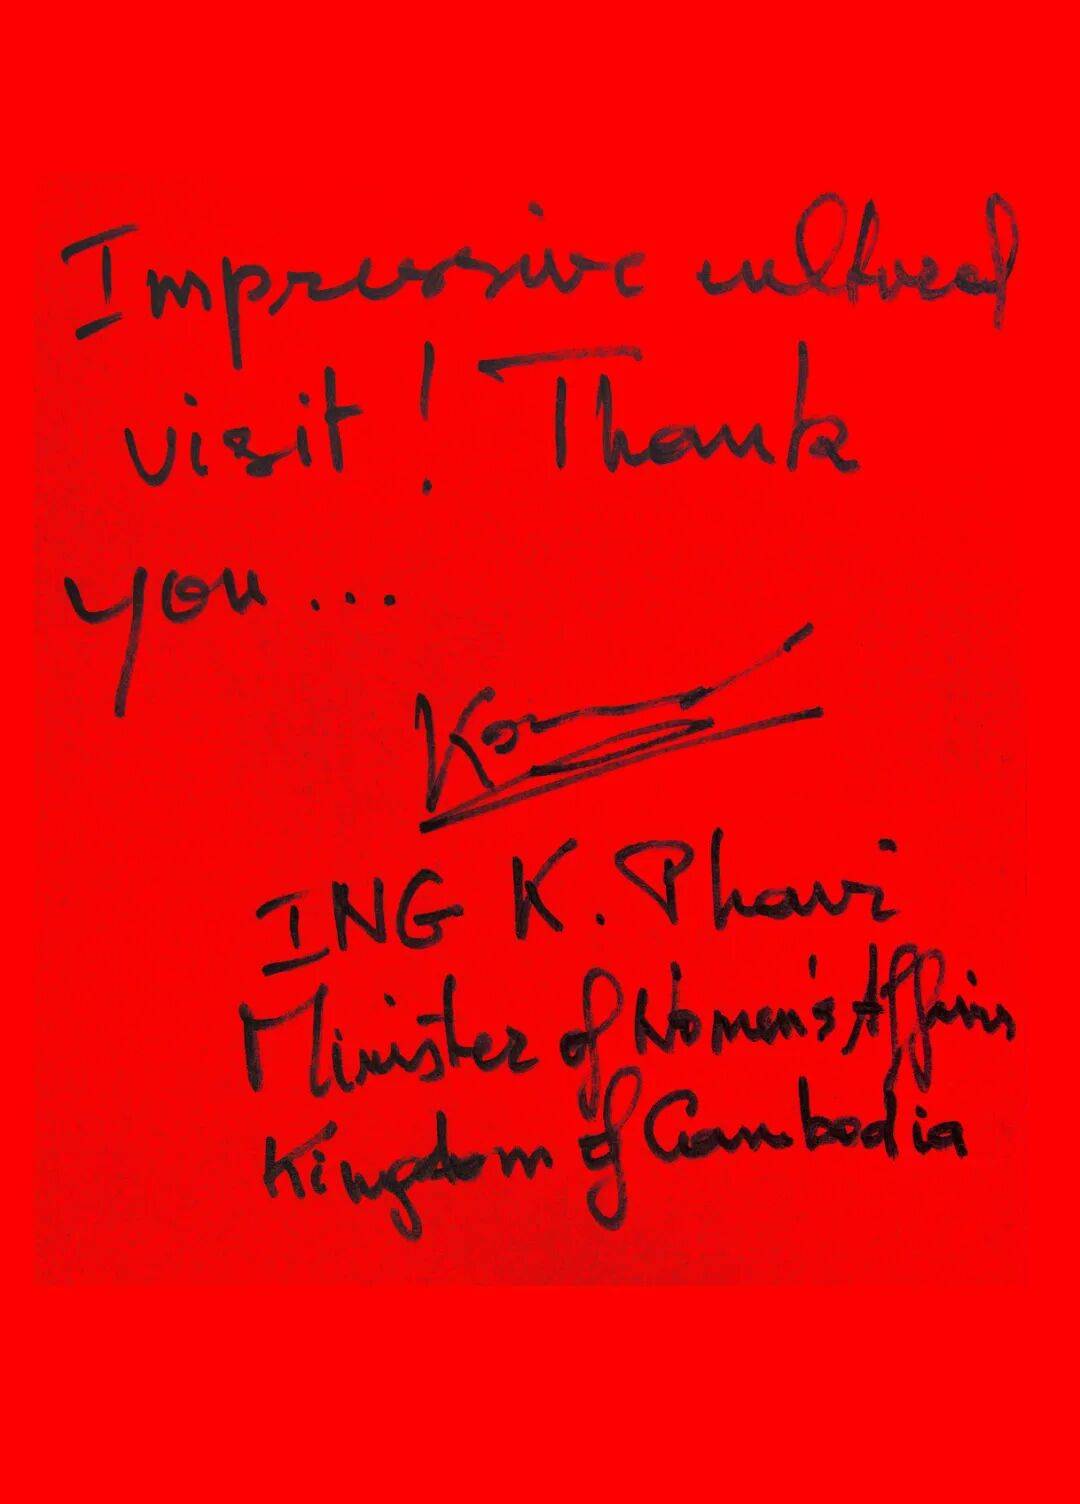 Impressive cultural
visit! Thank
you...
ING K. Phavi
Minister of Women's Affairs
Kingdom of Cambodia